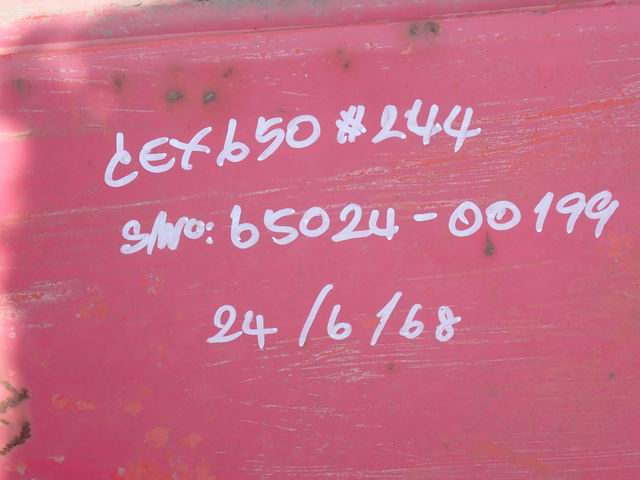 CEX650 #244
S/No: 65024-00199
24/6/68